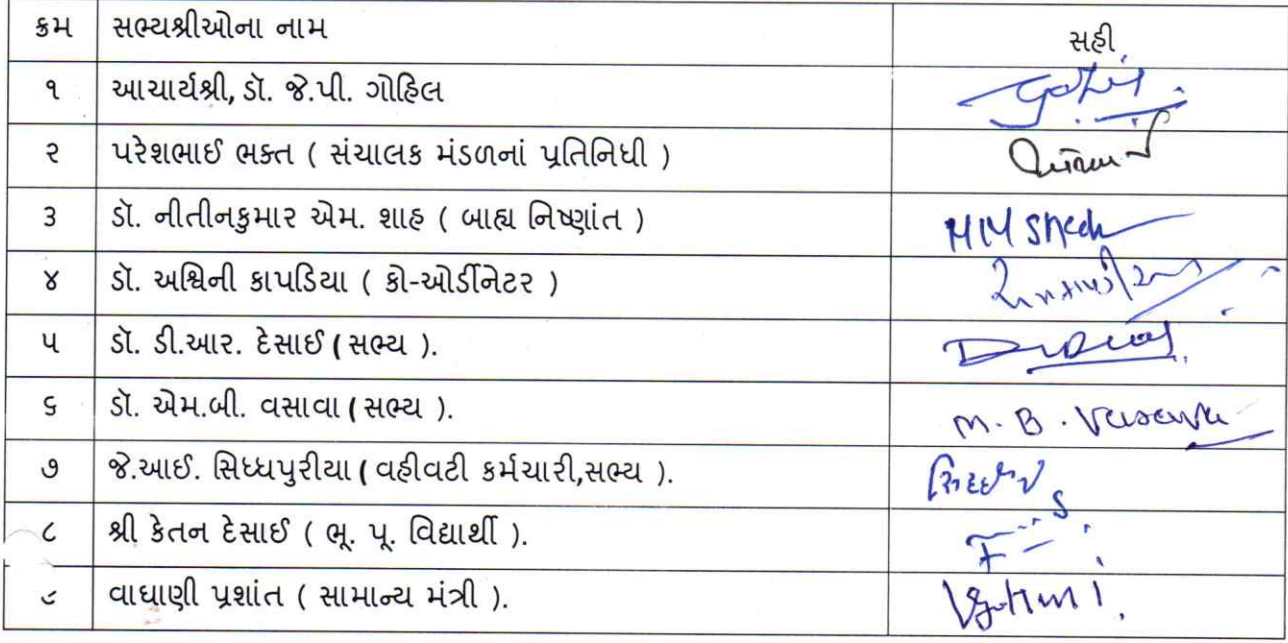 ક્રમ સભ્યશ્રીઓના નામ સહી
૧ આચાર્યશ્રી, ડૉ. જે.પી. ગોહિલ
૨ પરેશભાઈ ભક્ત ( સંચાલક મંડળનાં પ્રતિનિધી )
૩ ડૉ. નીતીનકુમાર એમ. શાહ ( બાહ્ય નિષ્ણાંત )
૪ ડૉ. અશ્વિની કાપડિયા ( કો-ઓર્ડીનેટર )
૫ ડૉ. ડી.આર. દેસાઈ ( સભ્ય ).
૬ ડૉ. એમ.બી. વસાવા ( સભ્ય ). M. B. Vasava
૭ જે.આઈ. સિધ્ધપુરીયા ( વહીવટી કર્મચારી,સભ્ય ).
૮ શ્રી કેતન દેસાઈ ( ભૂ. પૂ. વિદ્યાર્થી ).
૯ વાઘાણી પ્રશાંત ( સામાન્ય મંત્રી ).